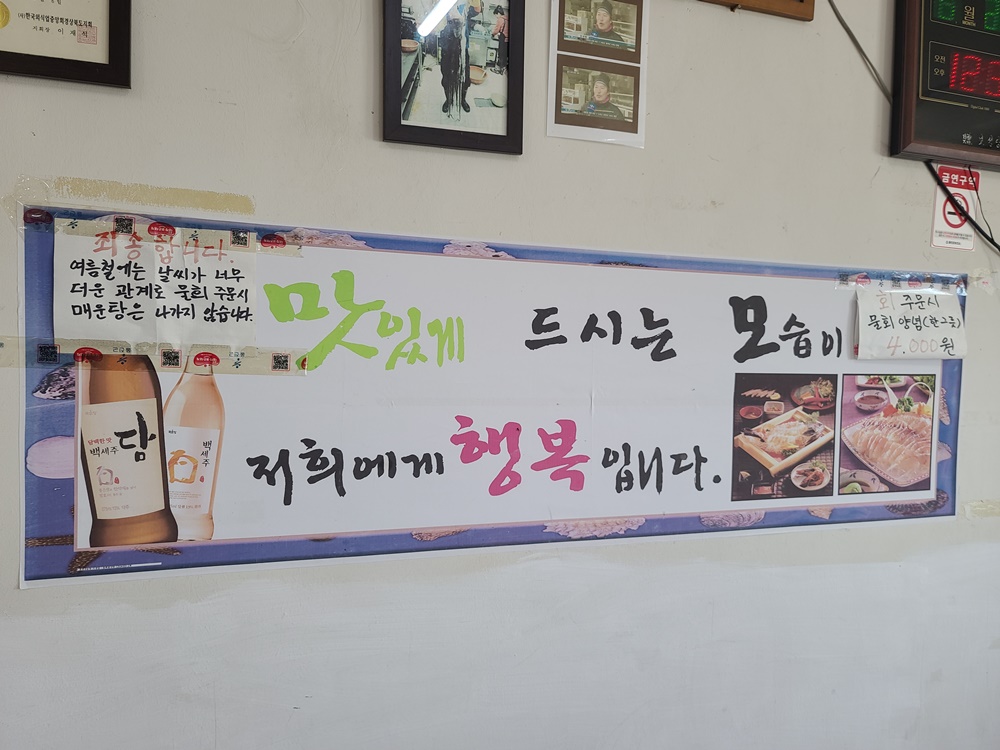 (사)한국외식업중앙회경상북도지회
지회장 이 재 식
월
MONTH
오전
오후
금연구역
죄송합니다.
여름철에는 날씨가 너무
더운 관계로 물회 주문시
매운탕은 나가지 않습니다.
맛있게 드시는 모습이
회 주문시
물회 양념(한그릇)
4,000원
저희에게 행복입니다.
담백한 맛
백세주
담
백세주